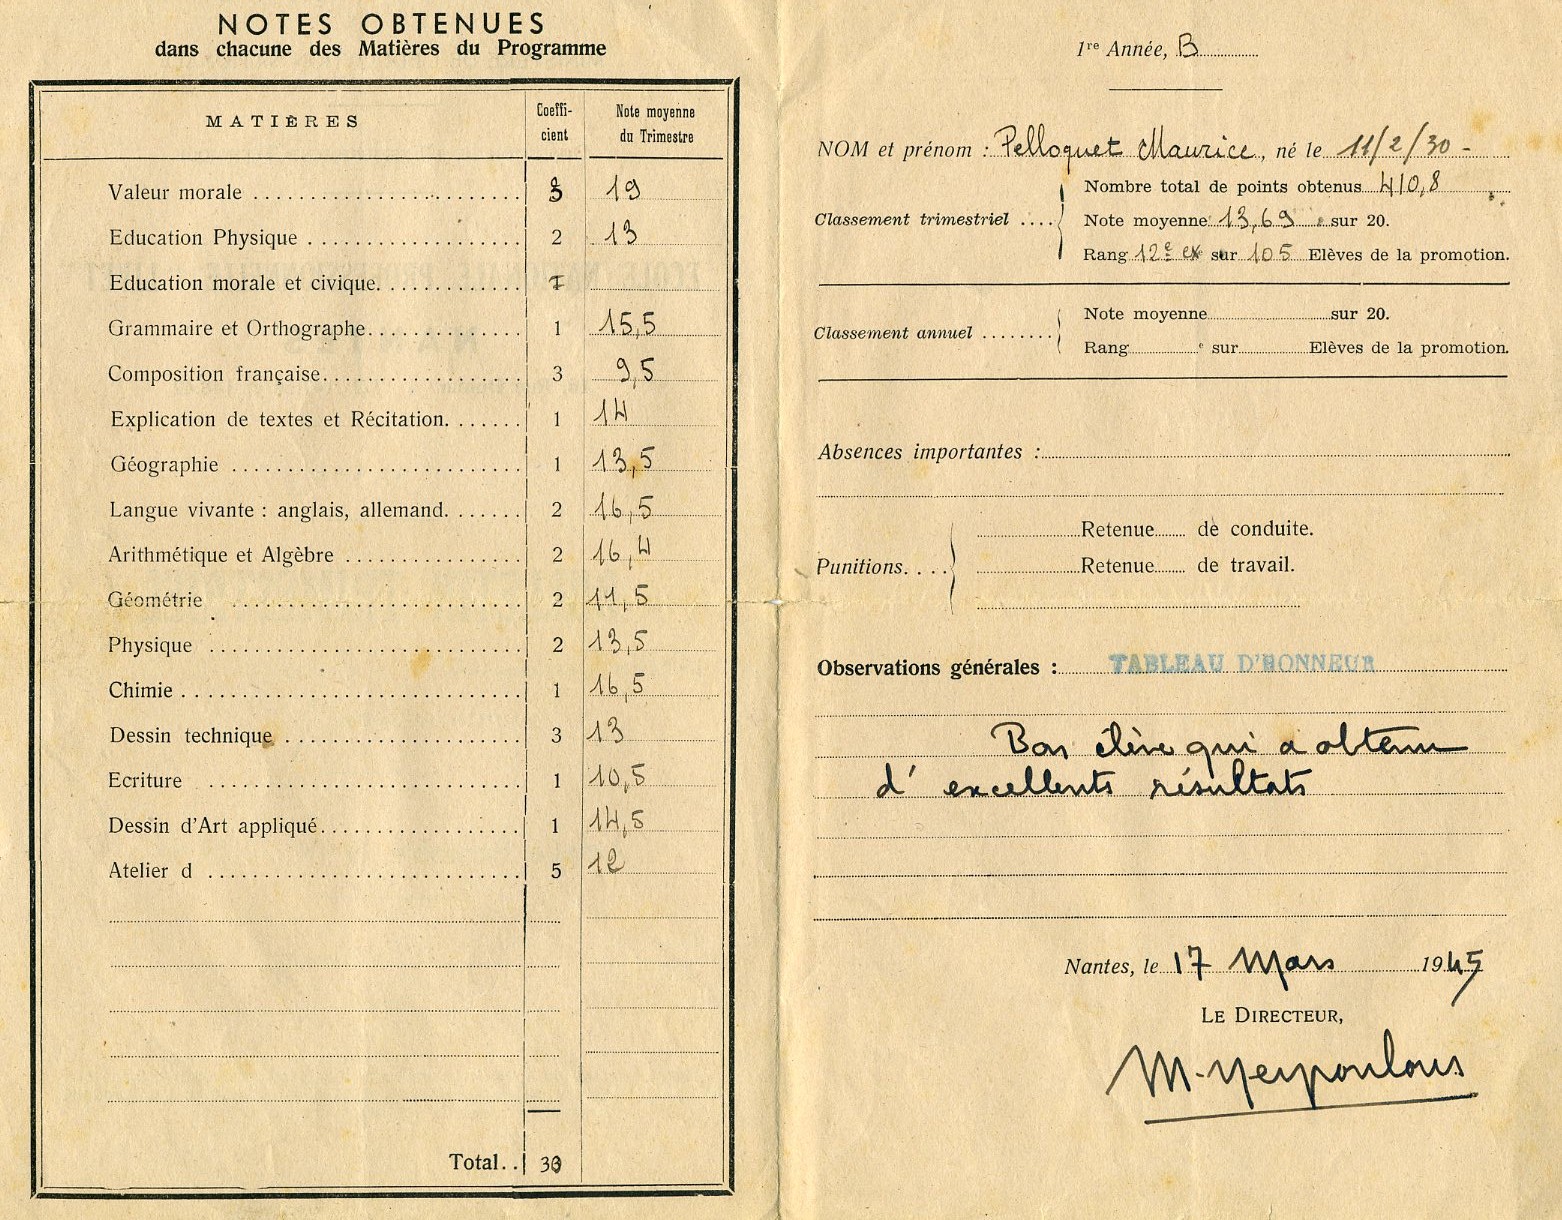 NOTES OBTENUES
dans chacune des Matières du Programme
MATIÈRES Coeffi-cient Note moyenne du Trimestre
Valeur morale 3 19
Education Physique 2 13
Education morale et civique 1
Grammaire et Orthographe 1 15,5
Composition française 3 9,5
Explication de textes et Récitation. 1 14
Géographie 1 13,5
Langue vivante : anglais, allemand. 2 16,5
Arithmétique et Algèbre 2 16,4
Géométrie 2 11,5
Physique 2 13,5
Chimie 1 16,5
Dessin technique 3 13
Ecriture 1 10,5
Dessin d'Art appliqué 1 14,5
Atelier d 5 12
Total.. 30
1re Année, B
NOM et prénom : Pelloquet Maurice, né le 11/2/30 -
Classement trimestriel
Nombre total de points obtenus 410,8
Note moyenne 13,69 sur 20.
Rang 12e ex sur 105 Elèves de la promotion.
Classement annuel
Note moyenne sur 20.
Rang e sur Elèves de la promotion.
Absences importantes :
Punitions
Retenue de conduite.
Retenue de travail.
Observations générales : TABLEAU D'HONNEUR
Bon élève qui a obtenu
d'excellents résultats
Nantes, le 17 Mars 1945
LE DIRECTEUR,